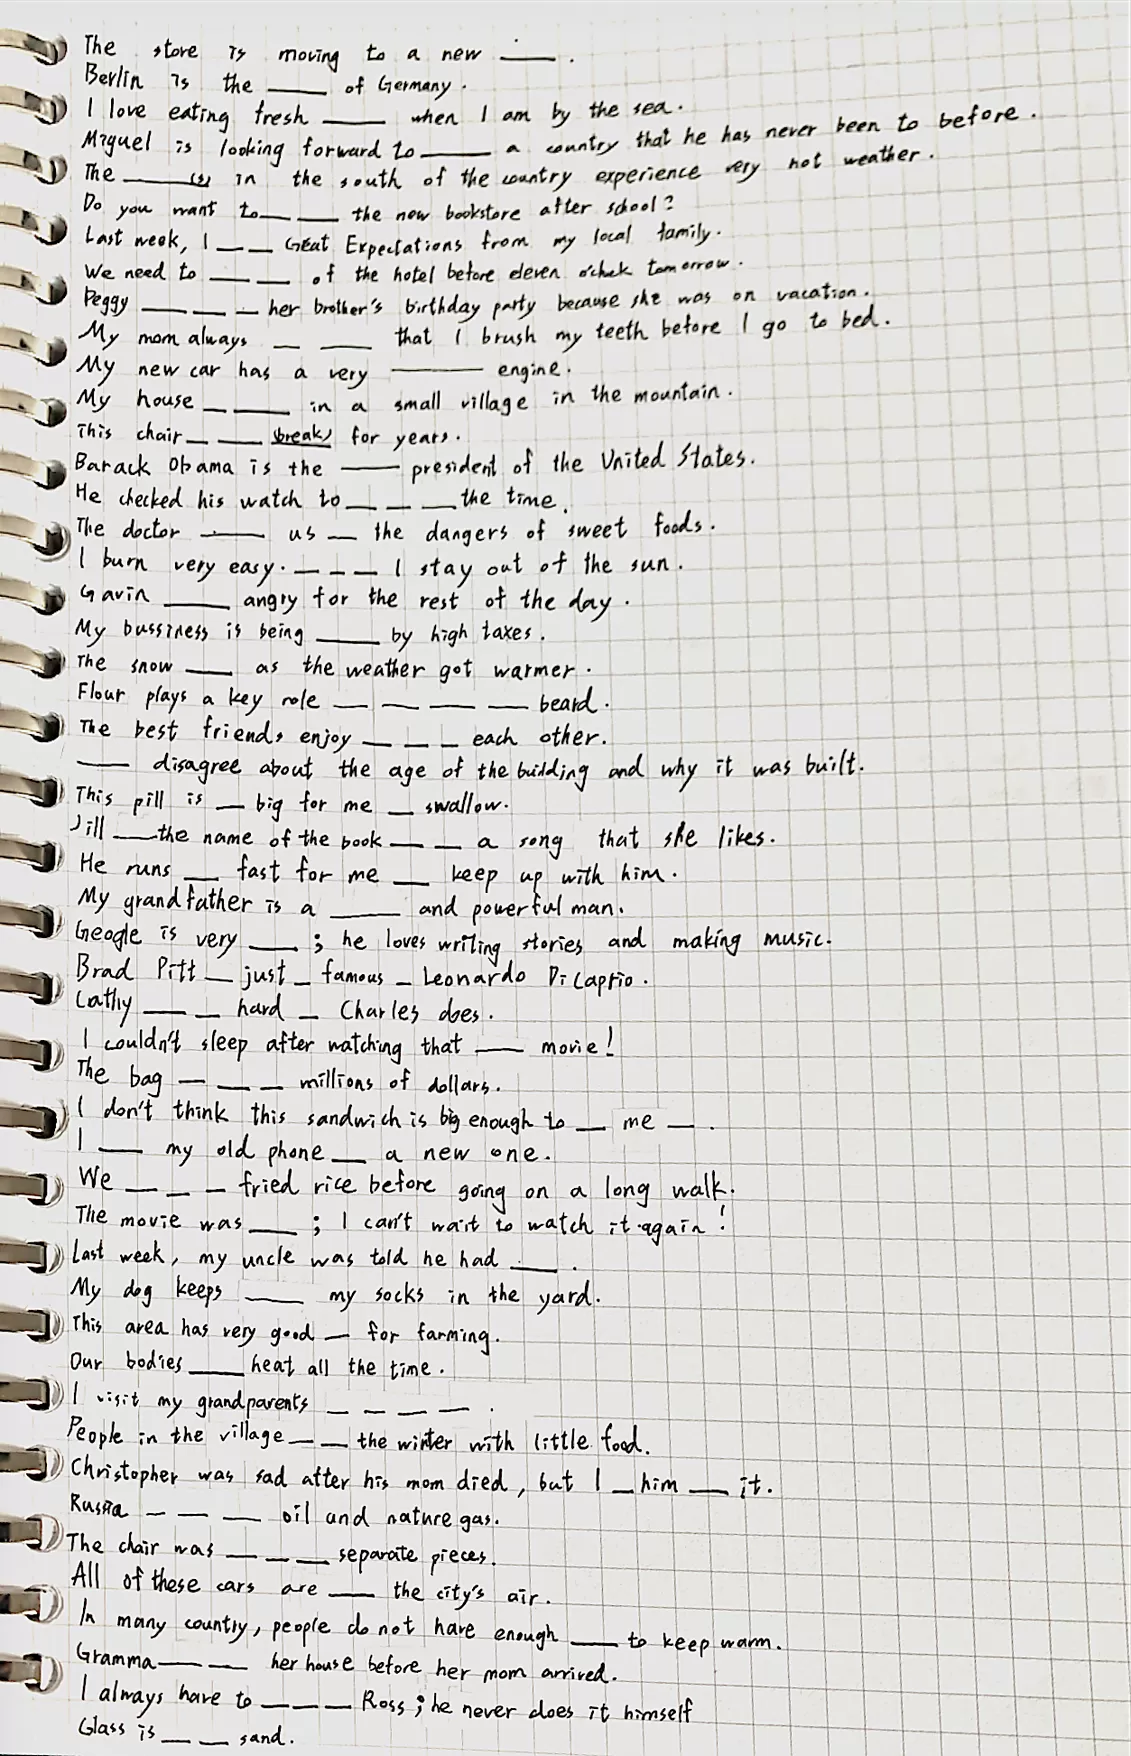 The store is moving to a new ____.
Berlin is the ____ of Germany.
I love eating fresh ____ when I am by the sea.
Miguel is looking forward to ____ a country that he has never been to before.
The ____(s) in the south of the country experience very hot weather.
Do you want to __ __ the new bookstore after school?
Last week, I __ __ Great Expectations from my local family.
We need to __ __ of the hotel before eleven o'clock tomorrow.
Peggy __ __ __ her brother's birthday party because she was on vacation.
My mom always __ __ that I brush my teeth before I go to bed.
My new car has a very ____ engine.
My house __ __ in a small village in the mountain.
This chair __ __ (break) for years.
Barack Obama is the ____ president of the United States.
He checked his watch to __ __ __ the time.
The doctor ____ us __ the dangers of sweet foods.
I burn very easy. __ __ __ I stay out of the sun.
Gavin ____ angry for the rest of the day.
My bussiness is being ____ by high taxes.
The snow ____ as the weather got warmer.
Flour plays a key role __ __ __ __ beard.
The best friends enjoy __ __ __ each other.
____ disagree about the age of the building and why it was built.
This pill is __ big for me __ swallow.
Jill ____ the name of the book __ __ a song that she likes.
He runs __ fast for me __ keep up with him.
My grandfather is a ____ and powerful man.
Geogle is very ____; he loves writing stories and making music.
Brad Pitt __ just __ famous __ Leonardo DiCaprio.
Cathy __ __ hard __ Charles does.
I couldn't sleep after watching that ____ movie!
The bag __ __ __ millions of dollars.
I don't think this sandwich is big enough to __ me __.
I ____ my old phone __ a new one.
We __ __ __ fried rice before going on a long walk.
The movie was ____; I can't wait to watch it again!
Last week, my uncle was told he had ____.
My dog keeps ____ my socks in the yard.
This area has very good __ for farming.
Our bodies ____ heat all the time.
I visit my grandparents __ __ __ __.
People in the village __ __ the winter with little food.
Christopher was sad after his mom died, but I __ him __ it.
Russia __ __ __ oil and nature gas.
The chair was __ __ __ separate pieces.
All of these cars are ____ the city's air.
In many country, people do not have enough ____ to keep warm.
Gramma __ __ her house before her mom arrived.
I always have to __ __ __ Ross; he never does it himself
Glass is __ __ sand.